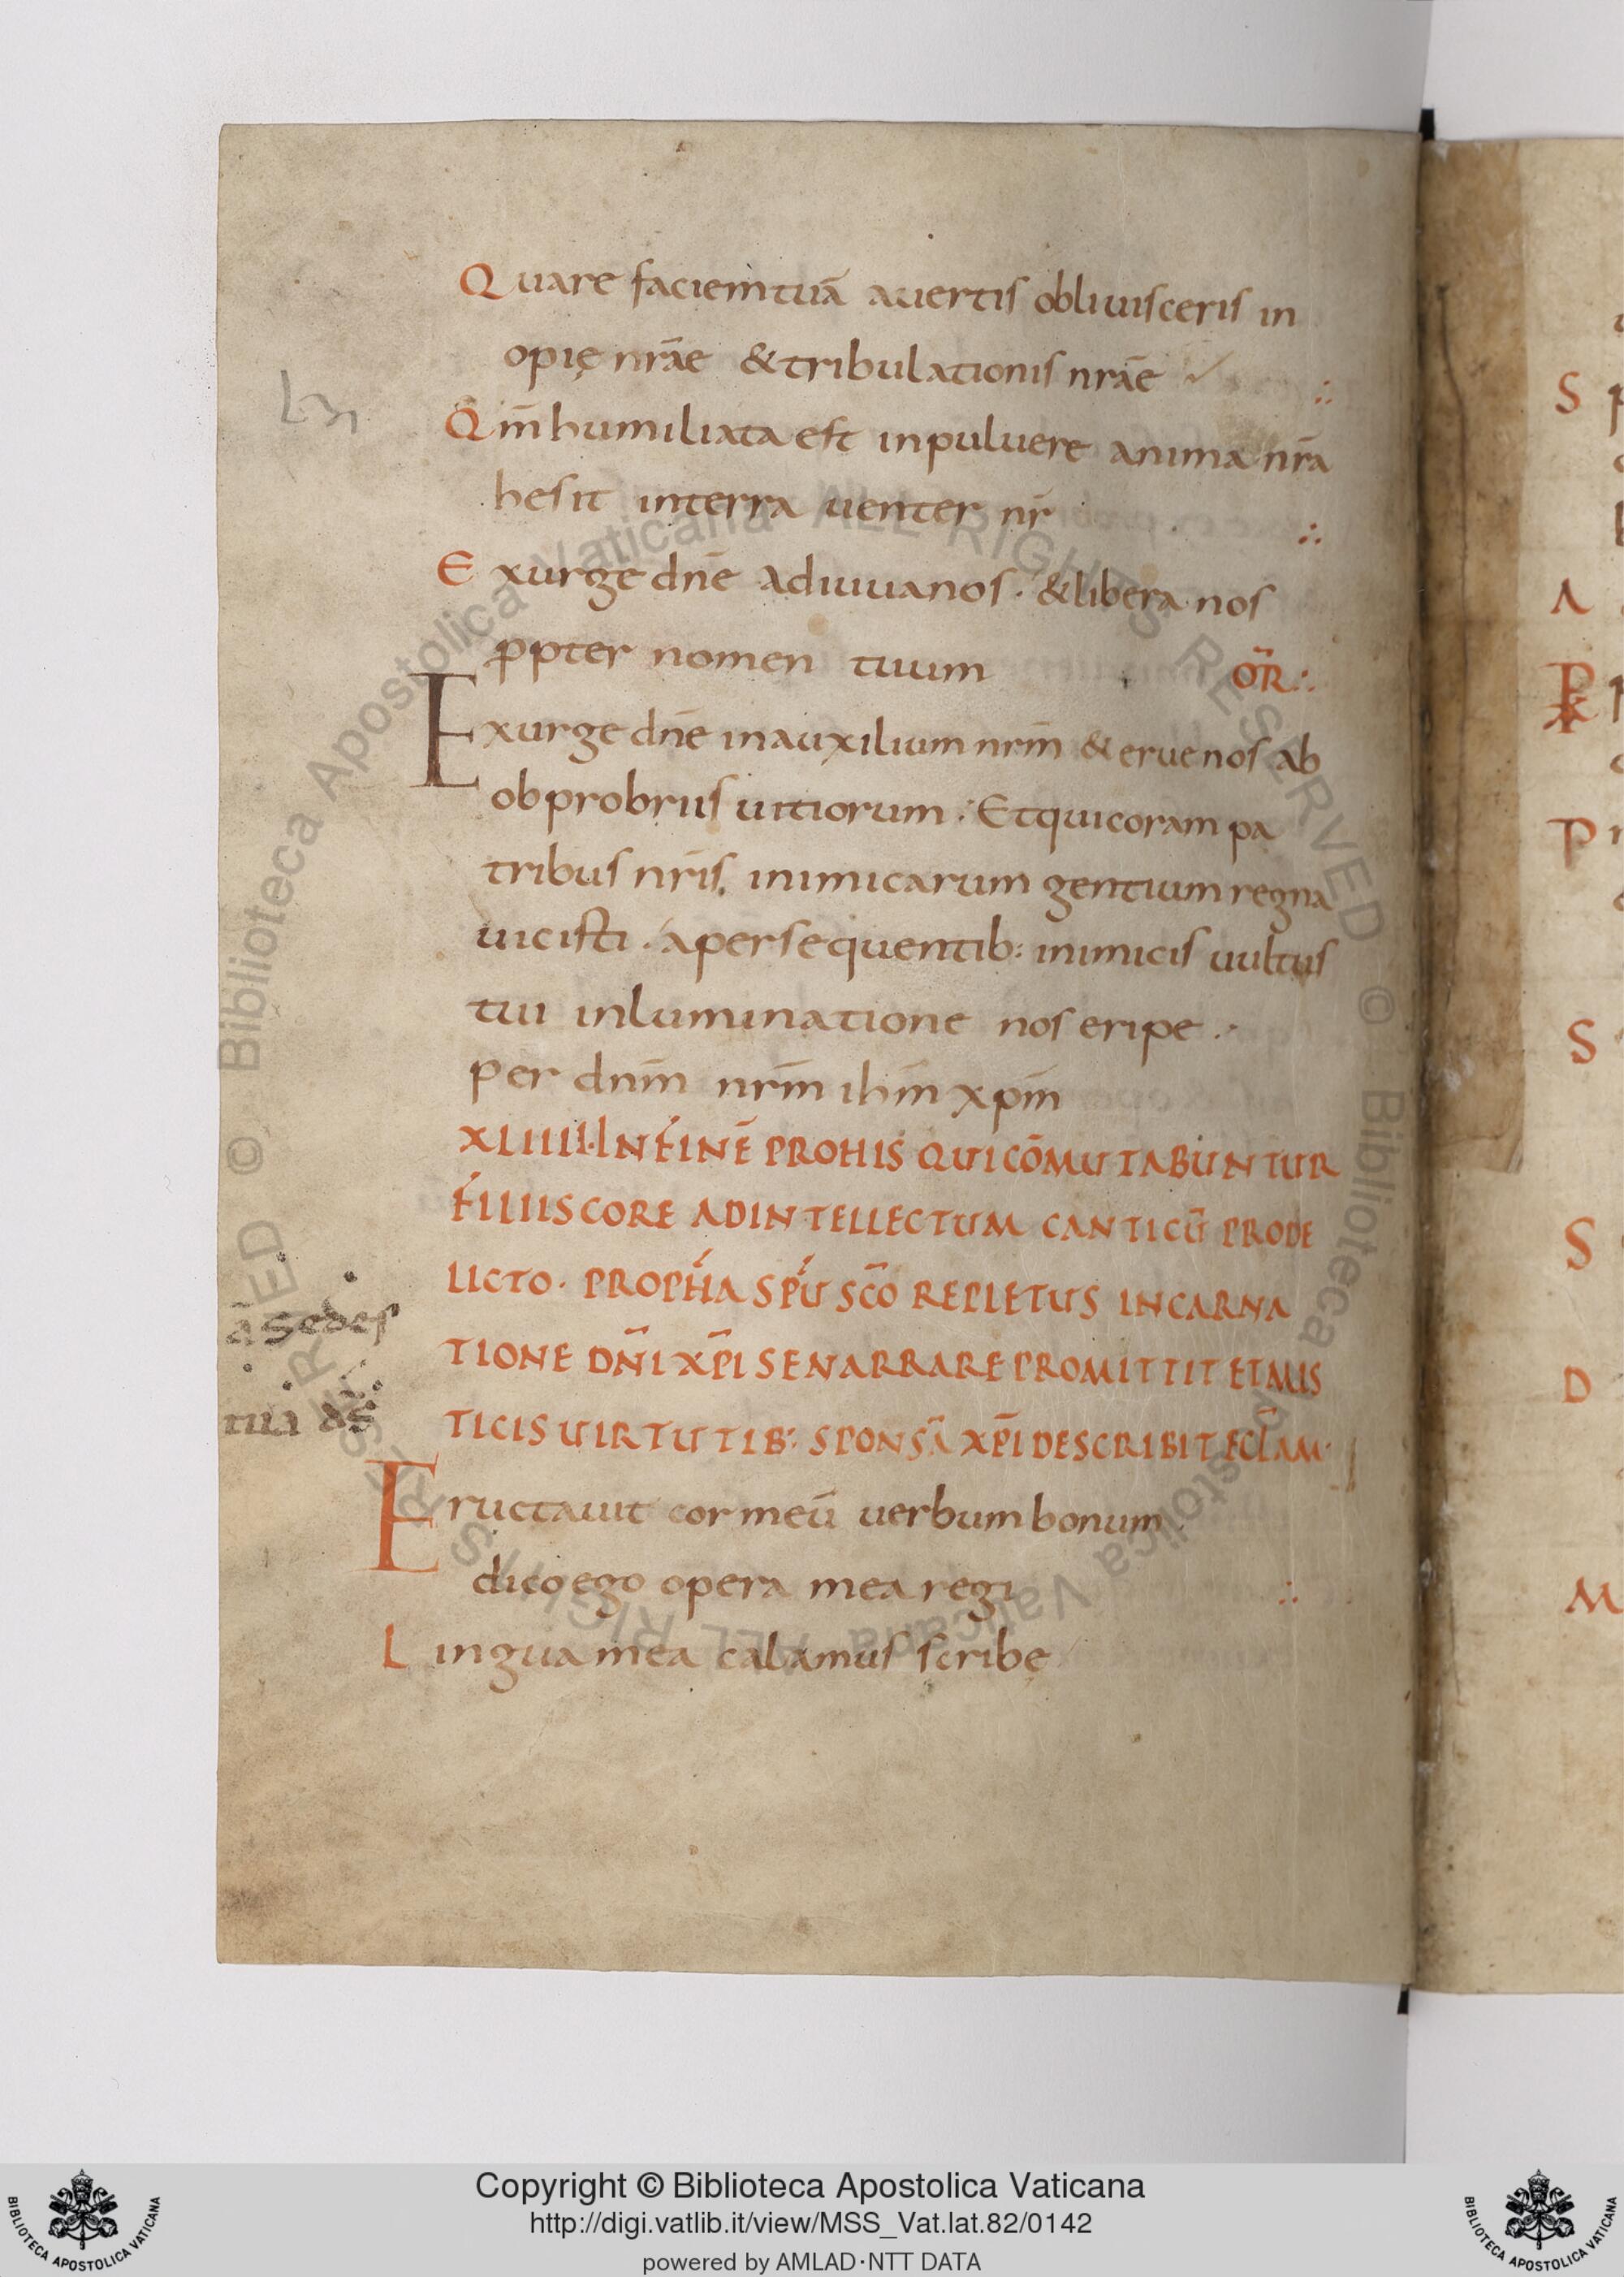 Quare faciemtuā auertis obliuisceris in
opię nrāe & tribulationis nrāe
Qm̄ humiliata est inpuluere anima nrā
hesit interra uenter nr̄
Exurge dnē adiuuanos · & libera nos
ppter nomen tuum OR̄ ∴
Exurge dnē inauxilium nrm̄ & eruenos ab
obprobriis uitiorum · Etquicoram pa
tribus nrīs, inimicarum gentium regna
uicisti · apersequentib: inimicis uultus
tui inluminatione nos eripe ·
per dnm̄ nrm̄ ihm̄ xpm̄
XLIIII · INFINĒ PROHIS QUICŌMUTABUNTUR
FILIISCORE ADINTELLECTUM CANTICŪ PRODE
LICTO · PROPHA SPŪ SC̄O REPLETUS INCARNA
TIONE DN̄I XP̄I SENARRARE PROMITTIT ET MIS
TICIS UIRTUTIB: SPONSĀ XP̄I DESCRIBIT ECL̄AM ·
ā sedes
tua d̄s
Eructauit cormeū uerbumbonum
dicoego opera mea regi ∴
Lingua mea calamus scribę
S
Λ
P
S
S
D
M
© Biblioteca Apostolica Vaticana ALL RIGHTS RESERVED © Biblioteca Apostolica Vaticana ALL RIGHTS RESERVED
Copyright © Biblioteca Apostolica Vaticana
http://digi.vatlib.it/view/MSS_Vat.lat.82/0142
powered by AMLAD·NTT DATA
BIBLIOTECA APOSTOLICA VATICANA
BIBLIOTECA APOSTOLICA VATICANA